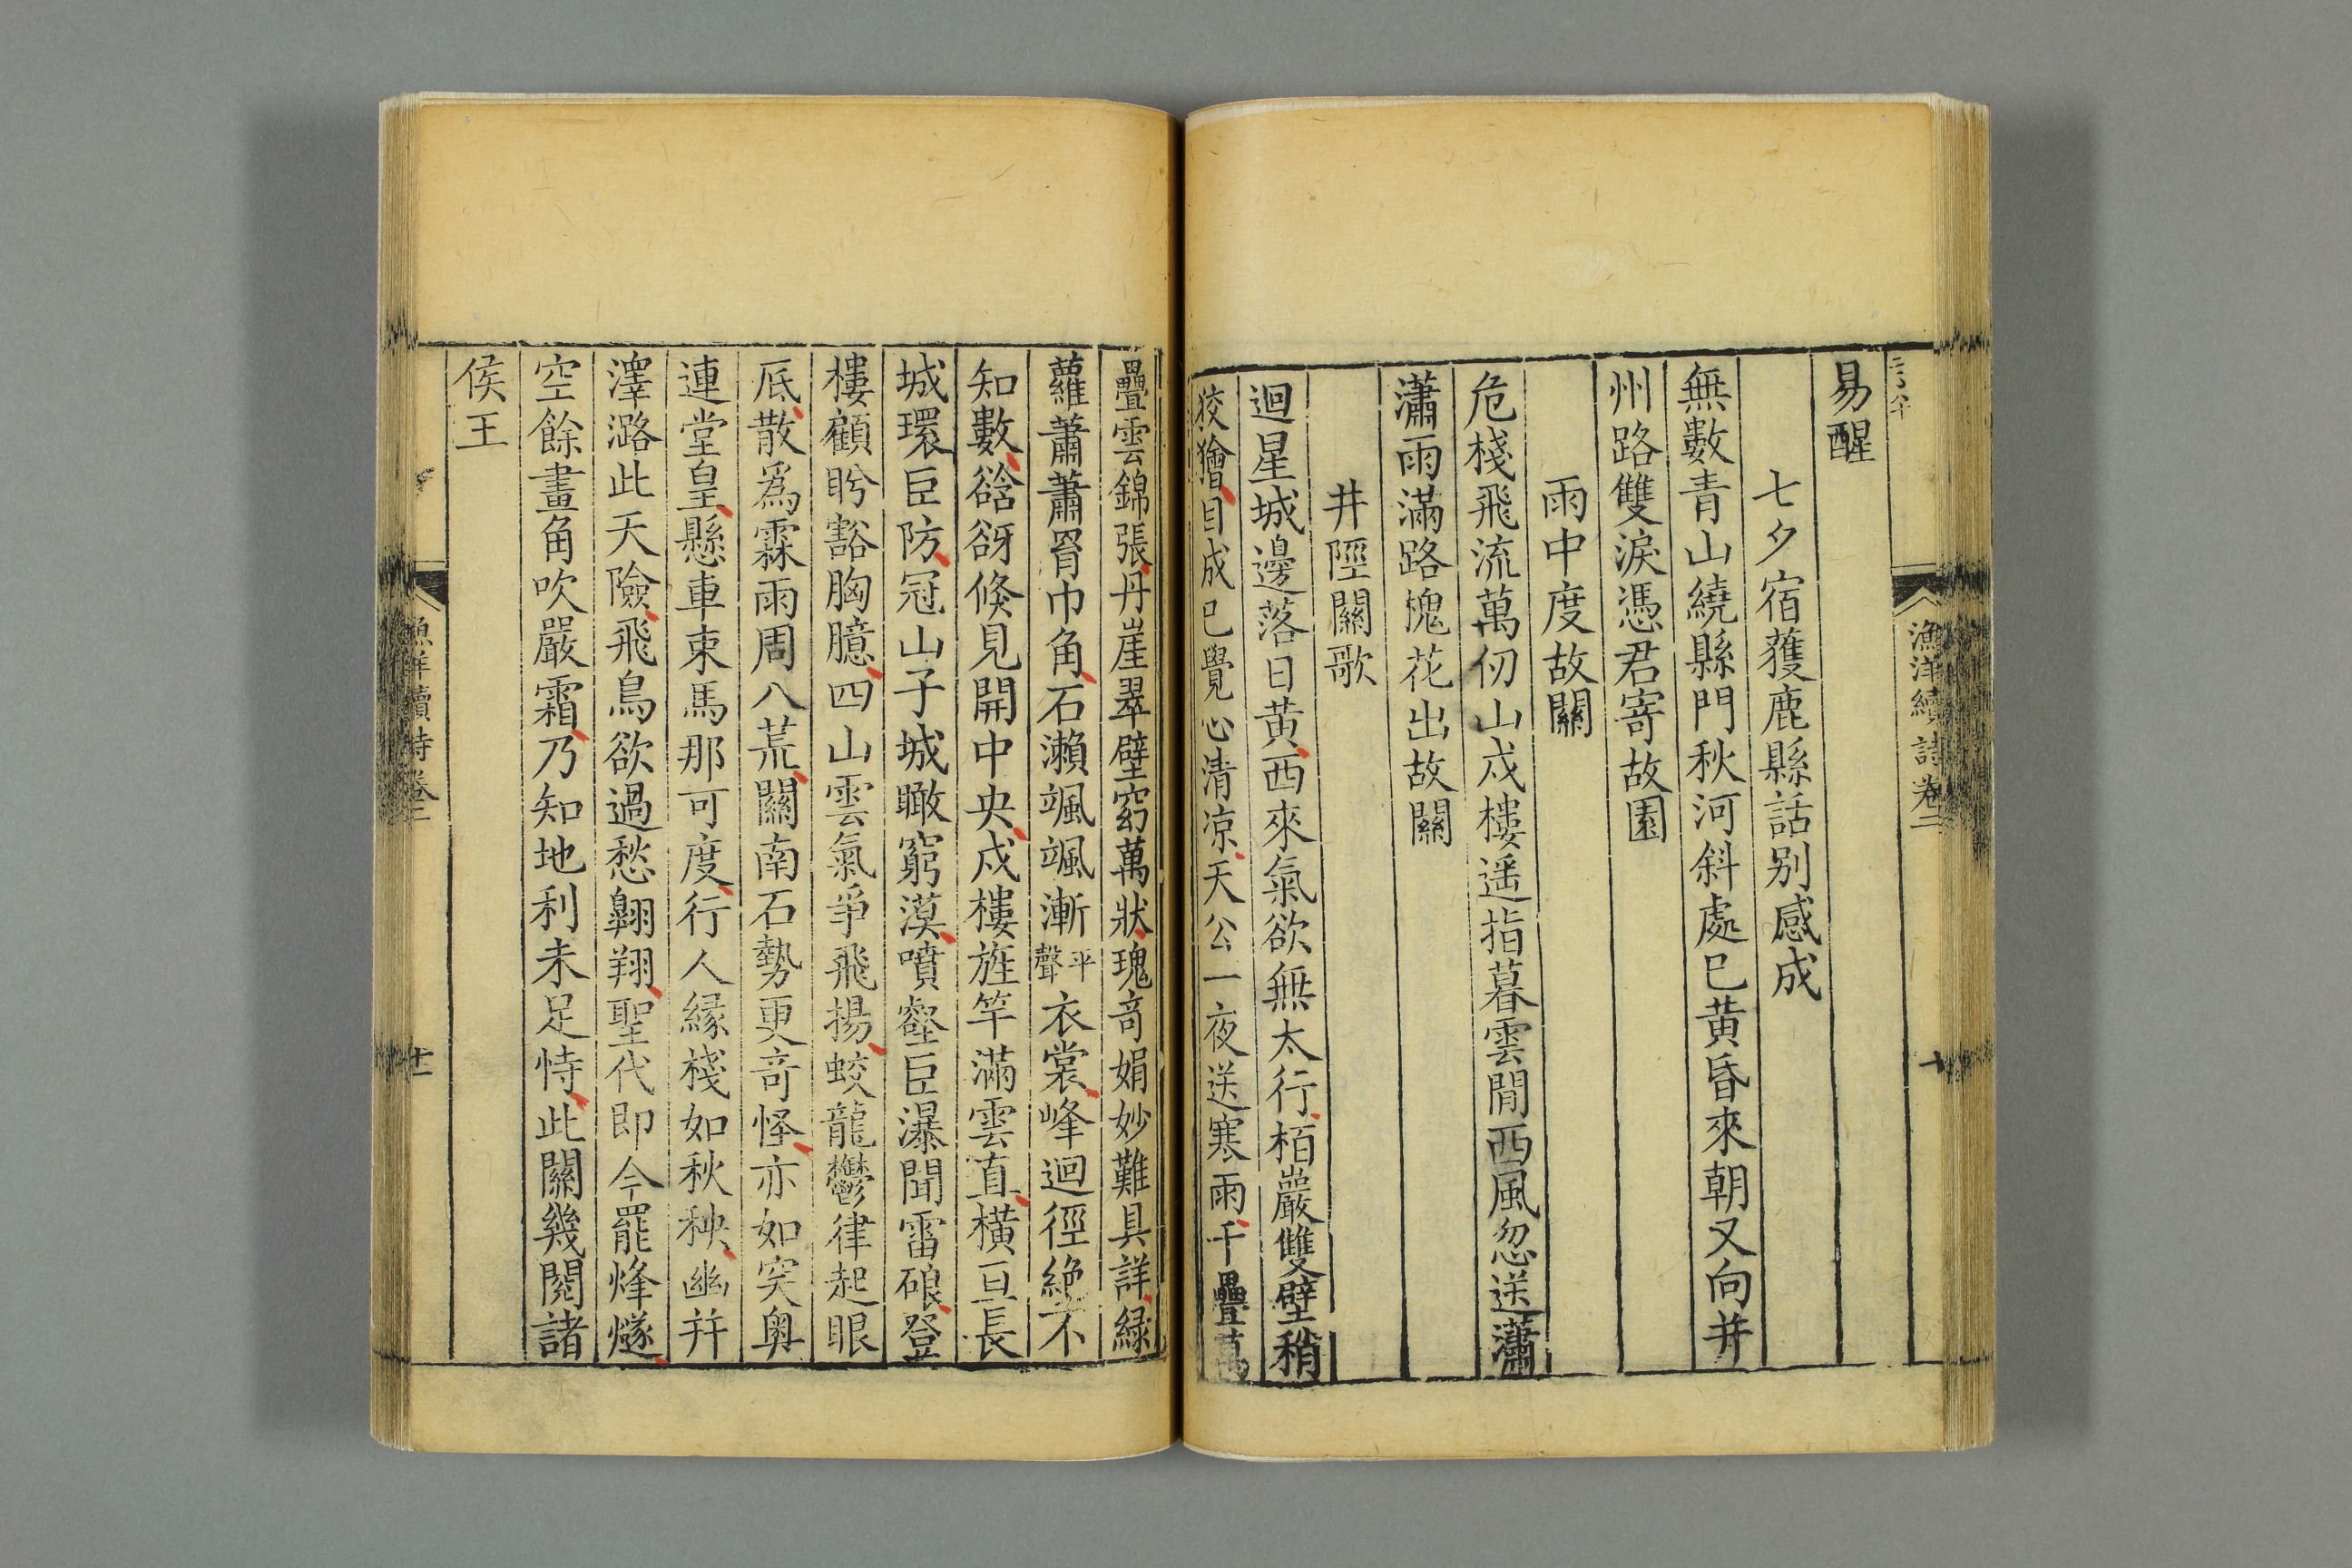 漁洋續詩卷二
十
易醒
七夕宿蒦鹿縣話别感成
無數青山繞縣門秋河斜處已黄昏來朝又向并
州路雙淚憑君寄故園
雨中度故關
危棧飛流萬仞山戍樓遥指暮雲閒西風忽送瀟
瀟雨滿路槐花出故關
井陘關歌
迴星城邊落日黄西來氣欲無太行栢巖雙壁稍
狡獪目成已覺心清凉天公一夜送寒雨千疊萬
疊雲錦張丹崖翠壁窈萬狀瑰奇娟妙難具詳緑
蘿蕭蕭罥巾角石瀨颯颯漸平聲衣裳峰迴徑絶不
知數谽谺倏見開中央戍樓旌竿滿雲直橫亘長
城環巨防冠山子城瞰窮漠噴壑巨瀑聞雷硠登
樓顧盻豁胸臆四山雲氣爭飛揚蛟龍鬱律起眼
底散爲霖雨周八荒關南石勢更奇怪亦如突奥
連堂皇懸車束馬那可度行人緣棧如秋秧幽并
澤潞此天險飛鳥欲過愁翺翔聖代即今罷烽燧
空餘畫角吹嚴霜乃知地利未足恃此關幾閱諸
侯王
漁洋續詩卷二
十一